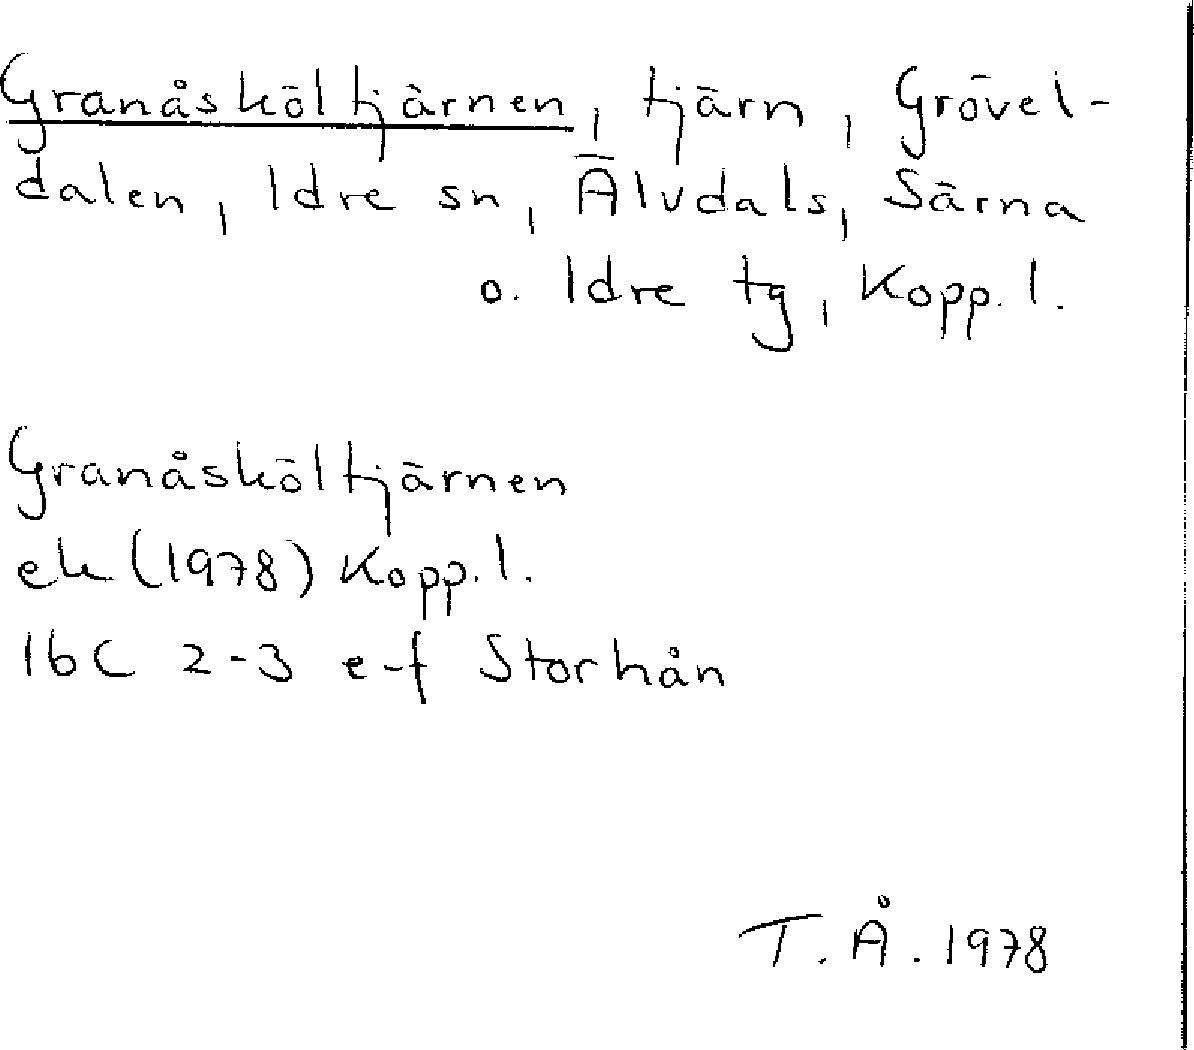 Granåsköltjärnen, tjärn, Grövel-
dalen, Idre sn, Älvdals, Särna
o. Idre tg, Kopp. l.
Granåsköltjärnen
ek (1978) Kopp. l.
16C 2-3 e-f Storhån
T. Å. 1978